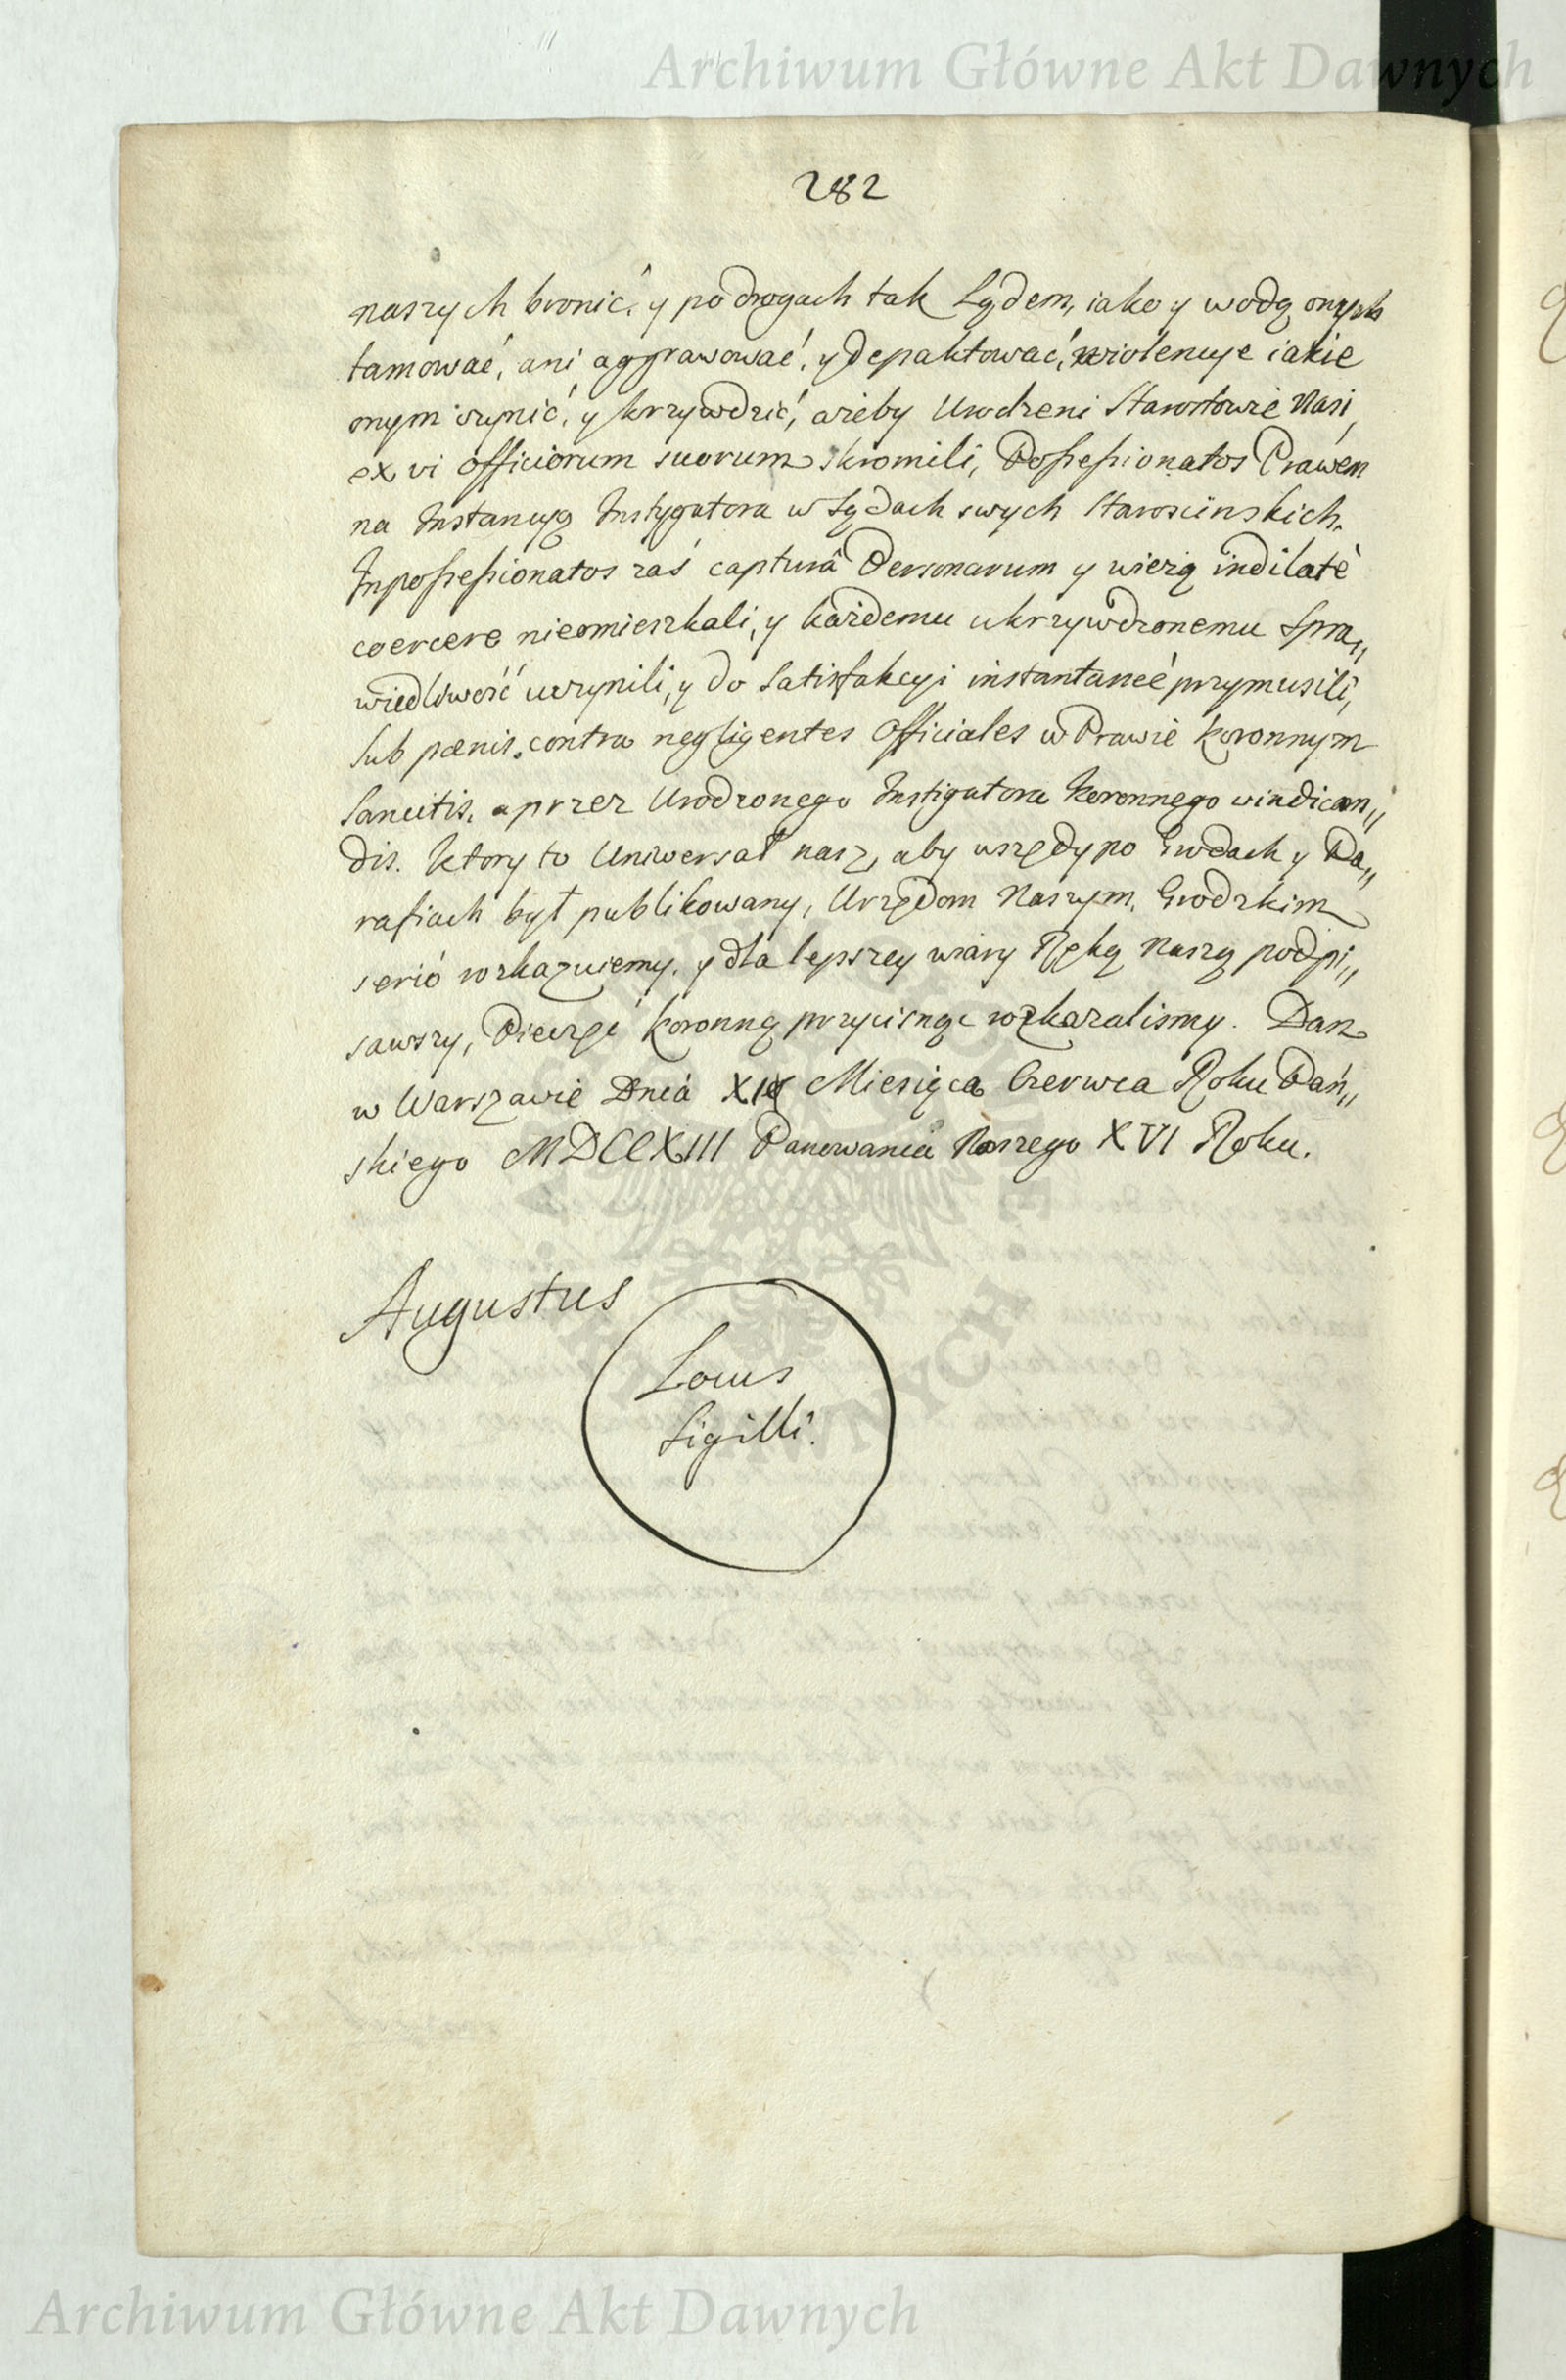 Archiwum Główne Akt Dawnych
282
naszych bronić, y po drogach tak Lądem, iako y wodą onych
tamować, ani aggrawować, y depaktować, wiolencye iakie
onym czynić, y krzywdzić, ażeby Urodzeni Starostowie Nasi,
ex vi officiorum suorum skromili, Possessionatos Prawem
na Instancyą Instygatora w Sądach swych Starościnskich,
Inpossessionatos zaś capturâ Personarum y wieżą indilatè
coercere nieomieszkali, y każdemu ukrzywdzonemu Spra„
wiedliwość uczynili, y do Satisfakcyi instantaneè przymusili,
sub pœnis contra negligentes Officiales w Prawie koronnym
Sancitis, a przez Urodzonego Instigatora Koronnego windican„
dis. Ktory to Uniwersał nasz, aby wszędy po Grodach y Pa„
rafiach był publikowany, Urzędom Naszym Grodzkim
seriò rozkazuiemy, y dla lepszey wiary Ręką Naszą podpi„
sawszy, Pieczęć koronną przycisnąc rozkazalismy. Dan
w Warszawie Dnia Miesiąca Czerwca Roku Pań„
skiego MDCCXIII Panowania Naszego XVI Roku.
Augustus
Locus
Sigilli.
Archiwum Główne Akt Dawnych